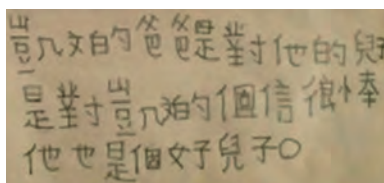 凱文的爸爸是對他的兒
是對凱文的個信很棒
他也是個好兒子。